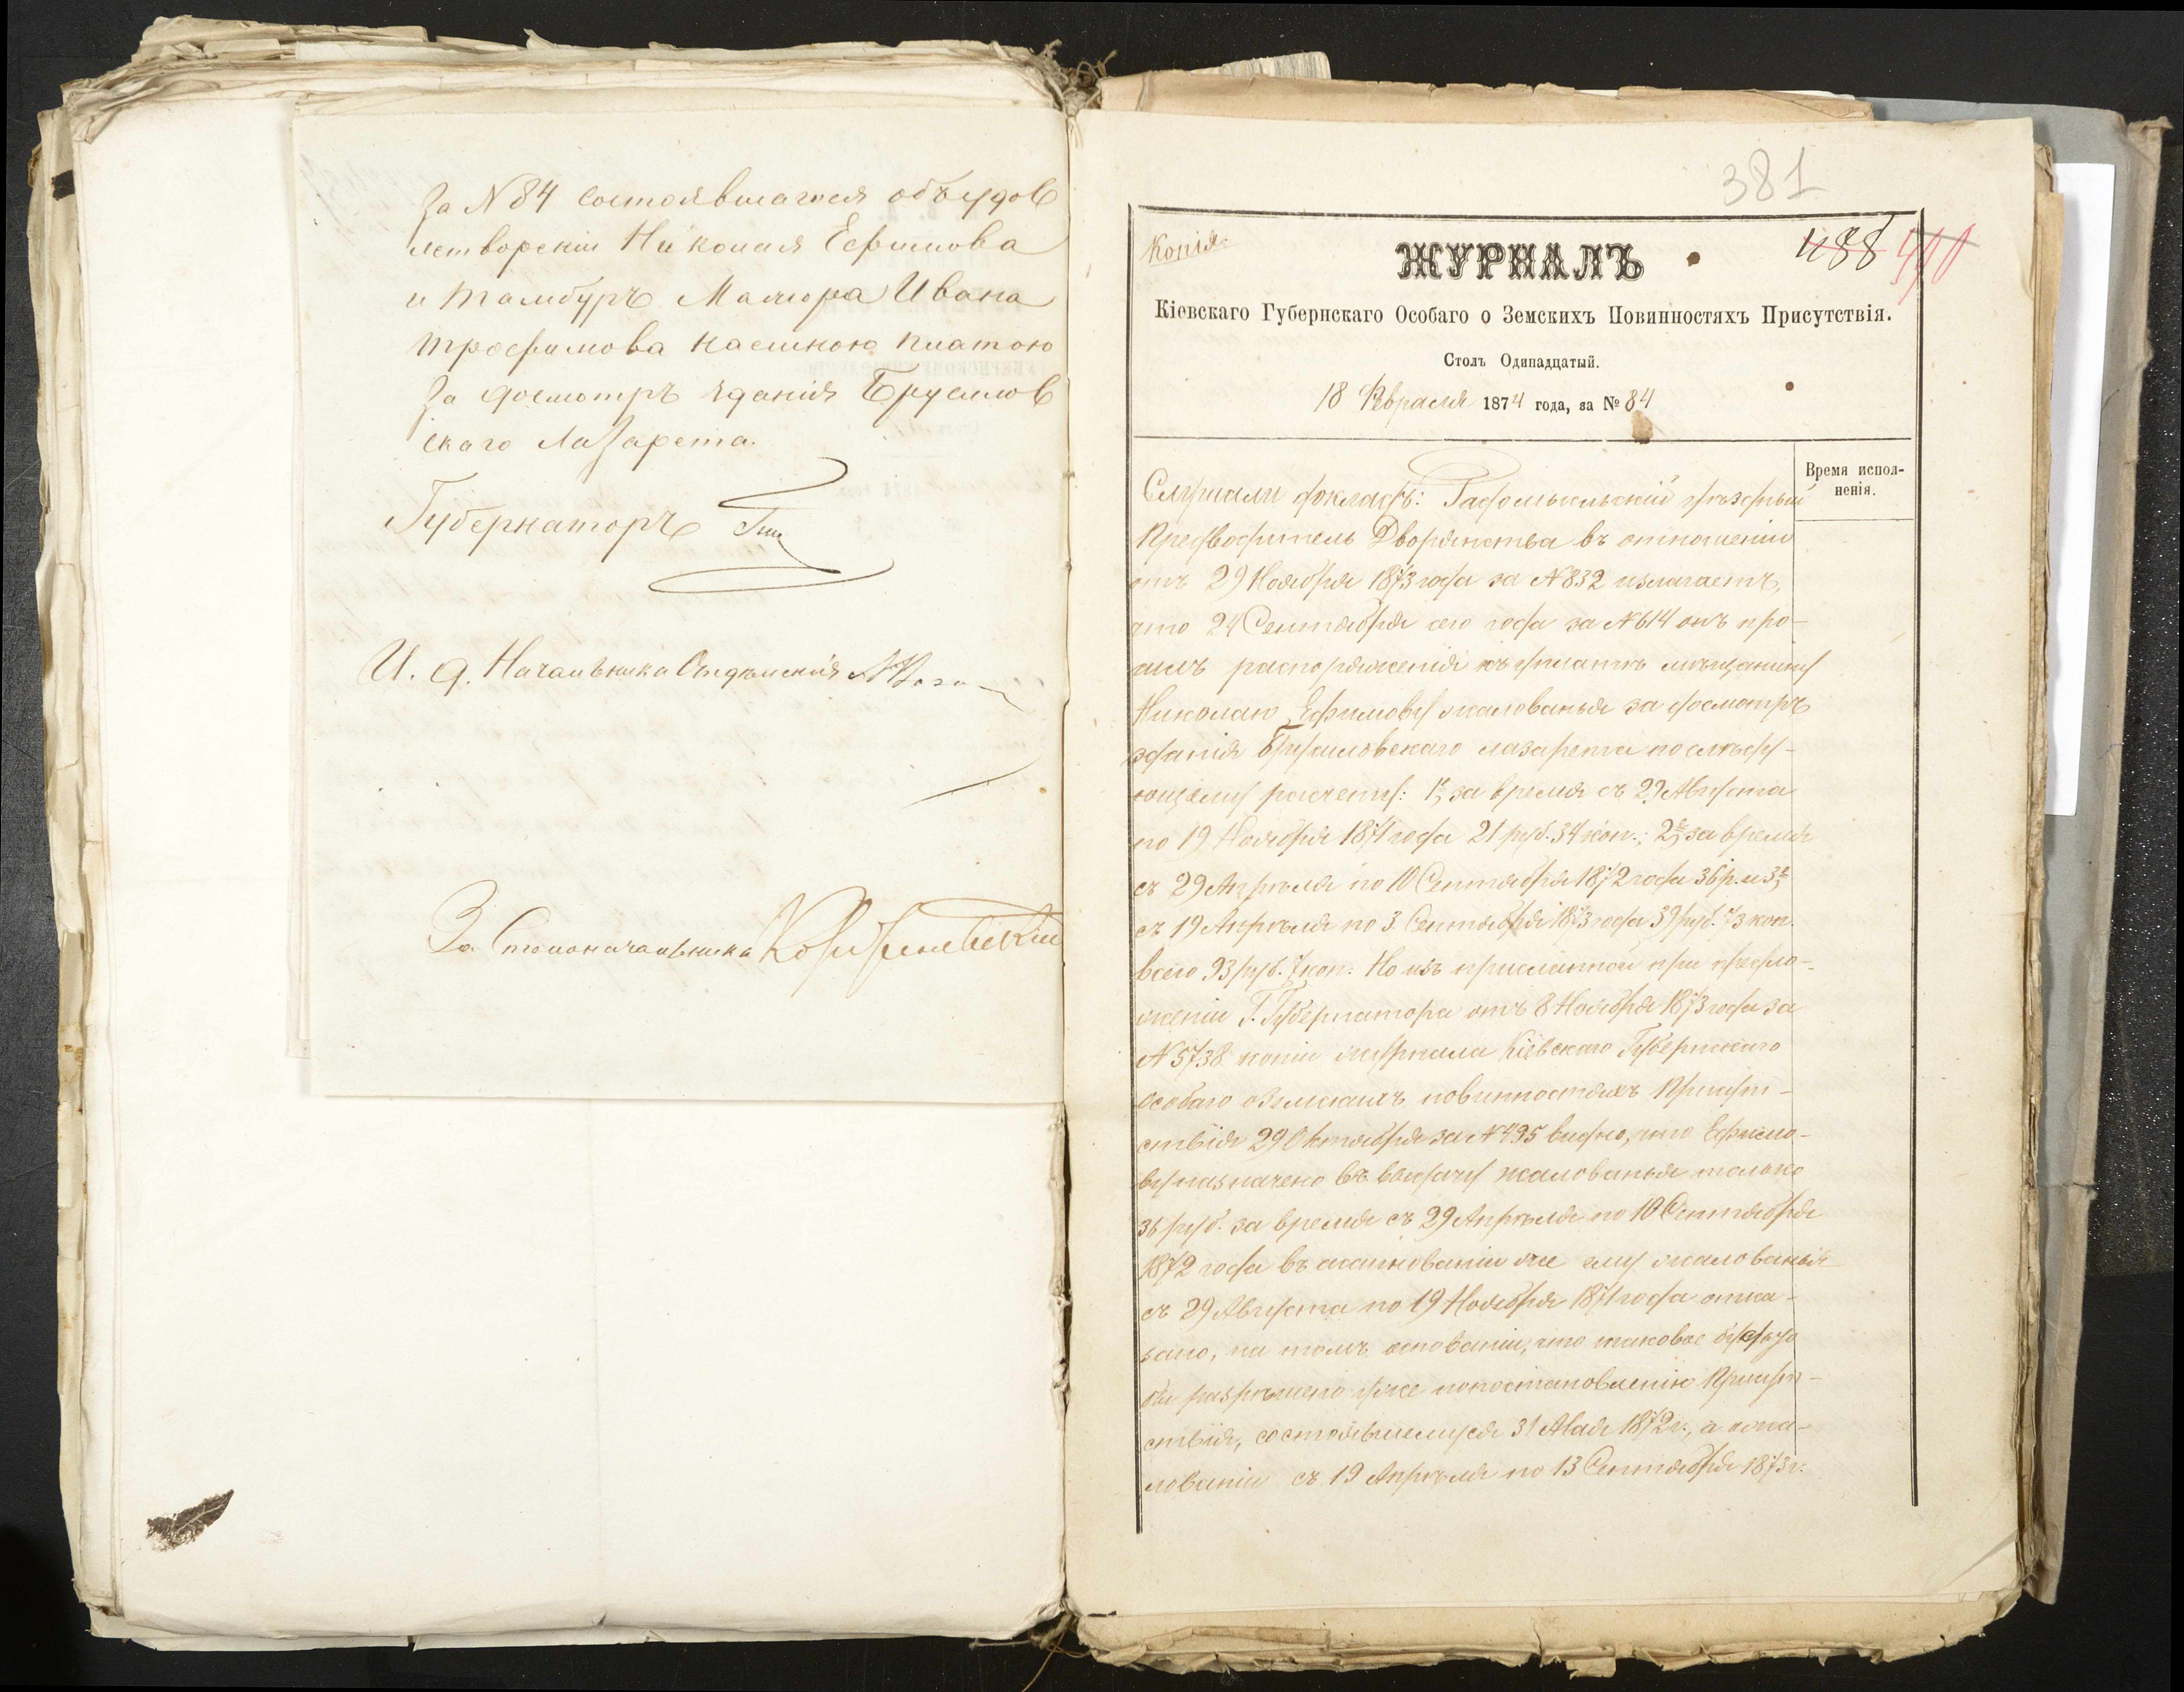 За N 84 состоявшагося объ удов
летвореніи Николая Ефимова
и Тамбуръ Маиора Ивана
Трофимова наемною платою
за досмотръ зданія Брусилов
скаго Лазарета.
Губернаторъ
И. д. Начальника Отдѣленія
За Столоначальника
381
Копія.
488 490
ЖУРНАЛЪ
Кіевскаго Губернскаго Особаго о Земскихъ Повинностяхъ Присутствія.
Столъ Одинадцатый.
18 Февраля 1874 года, за № 84
Время испол-
ненія.
Слушали докладъ: Радомысльскій уѣздный
Предводитель Дворянства въ отношеніи
отъ 29 Ноября 1873 года за N 832 излагаетъ,
что 24 Сентября сего года за N 614 онъ про-
силъ распоряженія къ уплатѣ мѣщанину
Николаю Ефимову жалованья за досмотръ
зданія Брусиловскаго лазарета по слѣду-
ющему расчету: 1, за время съ 29 Августа
по 19 Ноября 1871 года 21 руб. 34 коп.; 2, за время
съ 29 Апрѣля по 10 Сентября 1872 года 36 р. и 3,
съ 19 Апрѣля по 3 Сентября 1873 года 39 руб. 73 коп.
всего 93 руб. 7 коп. Но изъ присланной при предло-
женіи Г. Губернатора отъ 8 Ноября 1873 года за
N 5738 копіи журнала Кіевскаго Губернскаго
особаго о Земскихъ повинностяхъ Присут-
ствія 29 Октября за N 495 видно, что Ефимо-
ву назначено въ выдачу жалованья только
36 руб. за время съ 29 Апрѣля по 10 Сентября
1872 года въ ассигнованіи же ему жалованья
съ 29 Августа по 19 Ноября 1871 года отка-
зано, на томъ основаніи, что таковое будто
бы разрѣшено уже по постановленію Присут-
ствія, состоявшемуся 31 Мая 1872 г., а о жа-
лованіи съ 19 Апрѣля по 13 Сентября 1873 г.